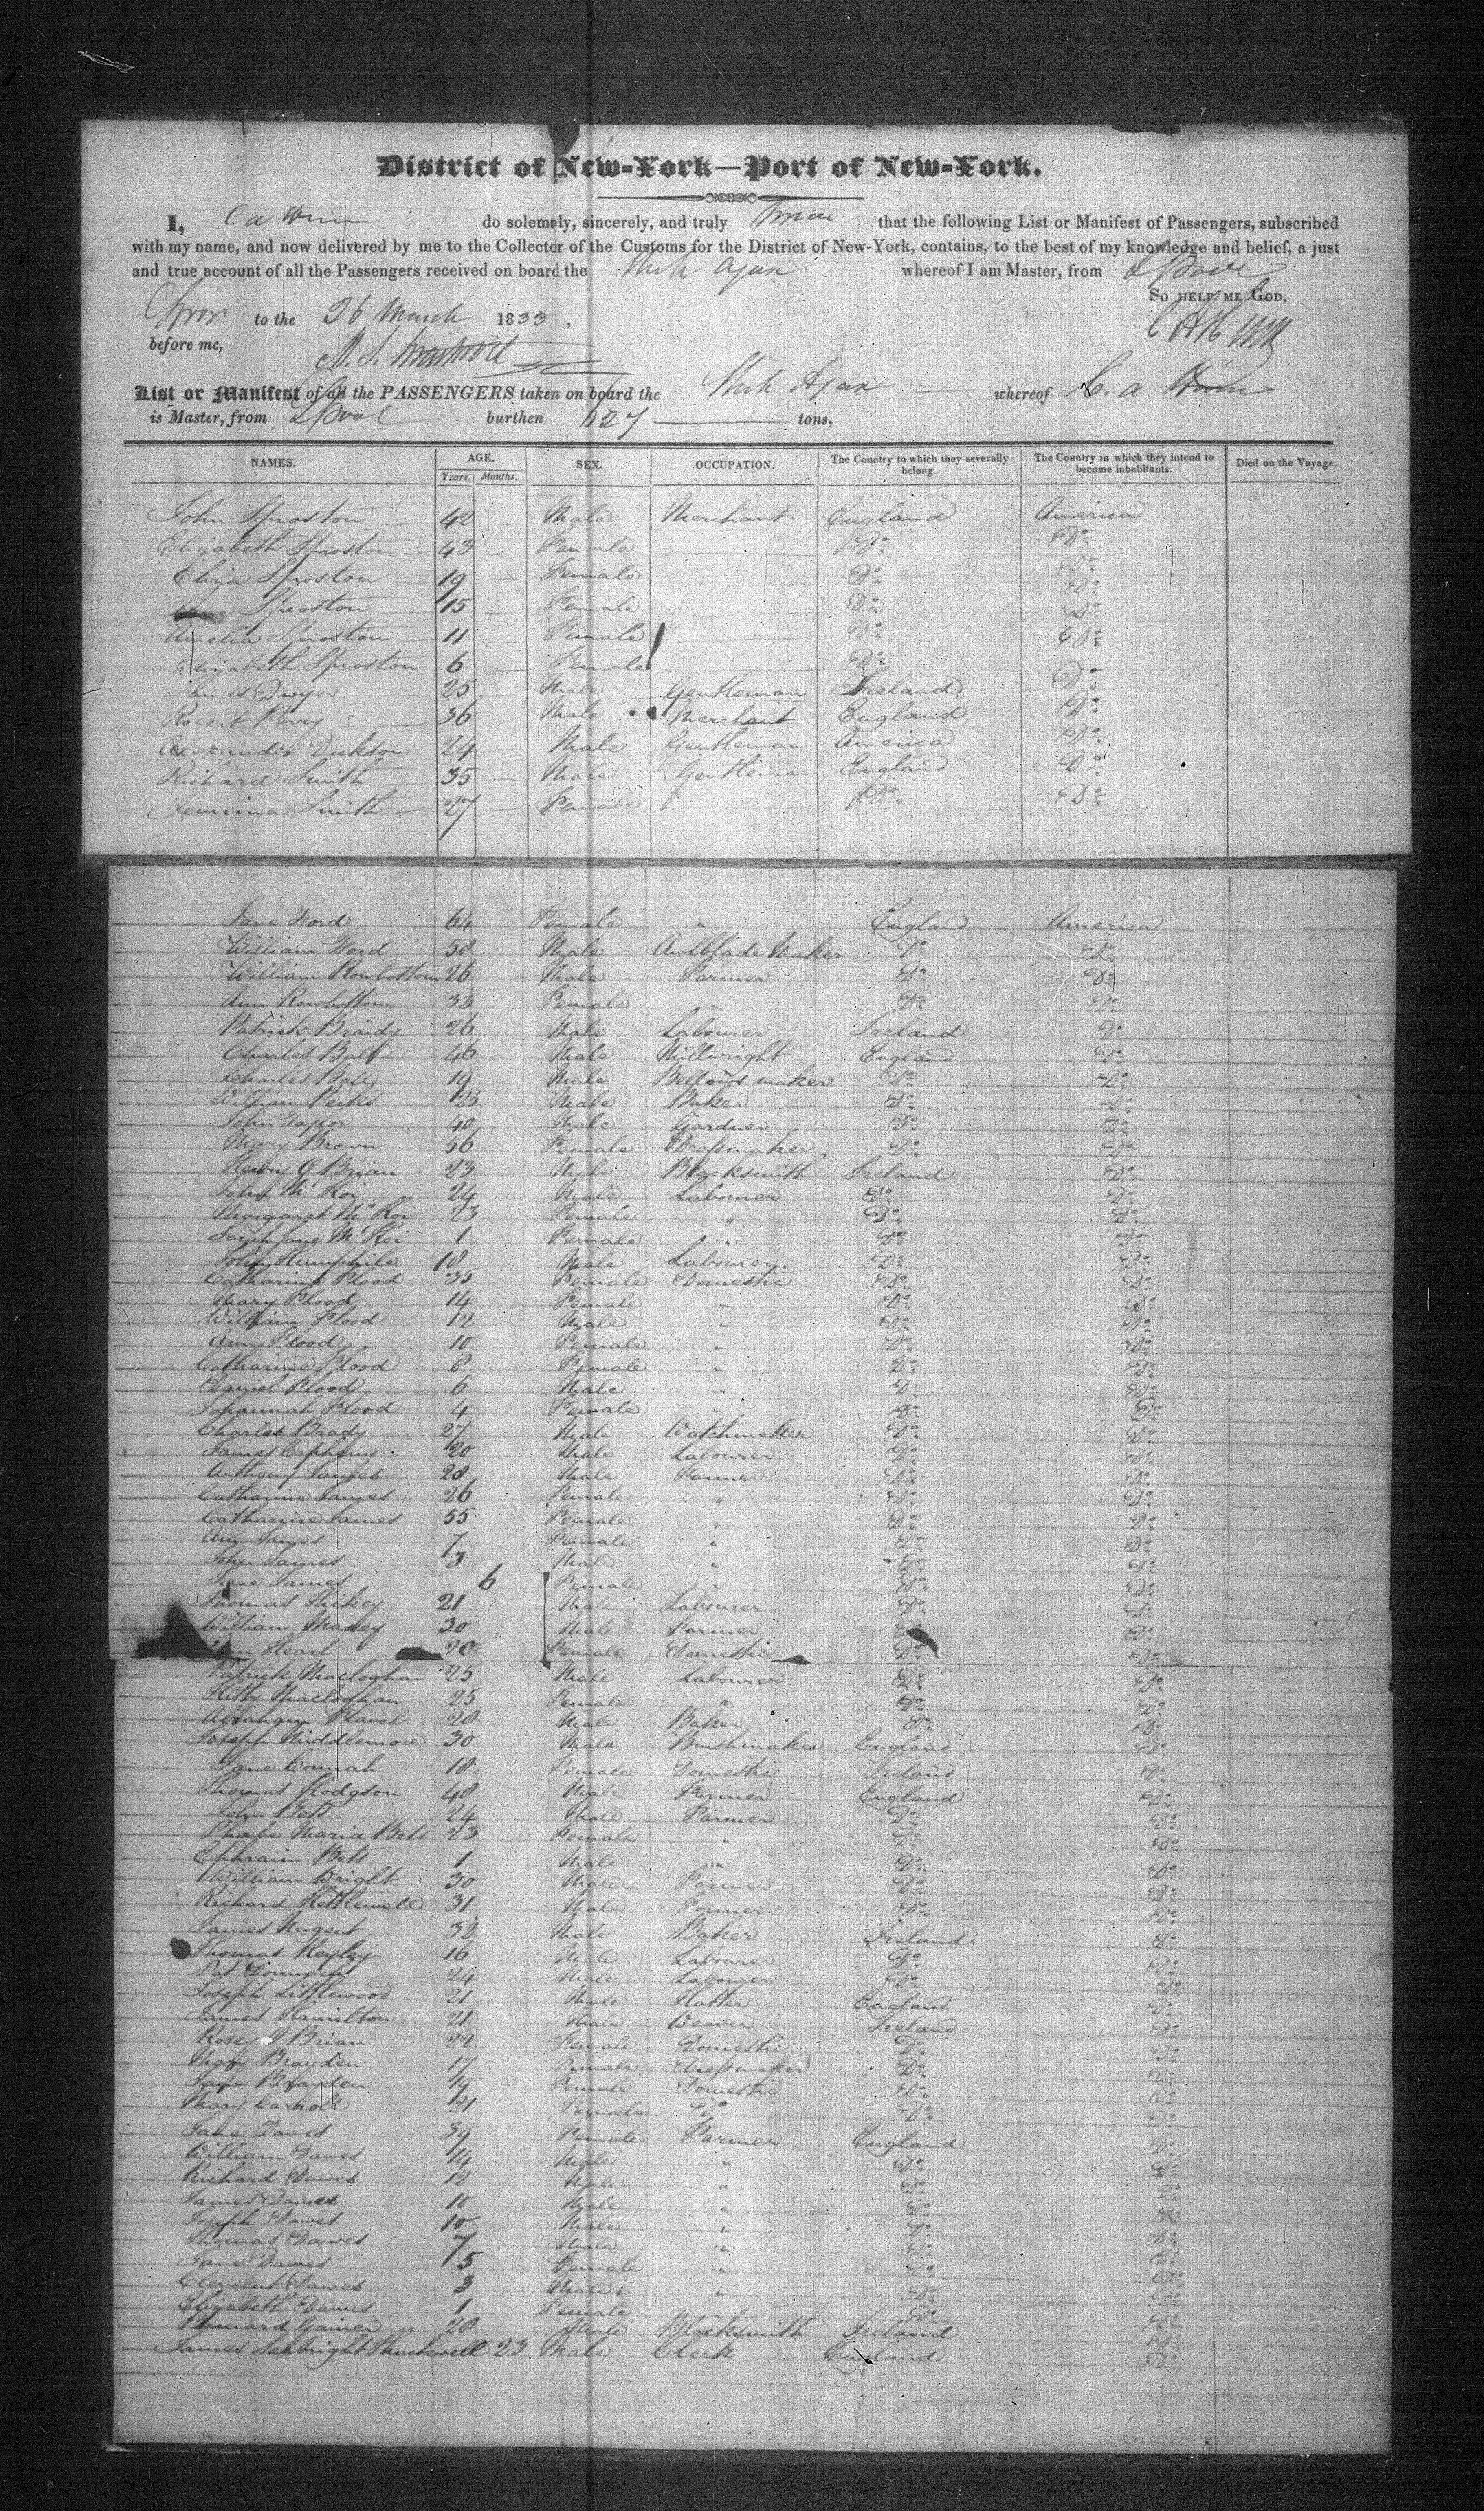 District of New-York—Port of New-York.
I, do solemnly, sincerely, and truly that the following List or Manifest of Passengers, subscribed
with my name, and now delivered by me to the Collector of the Customs for the District of New-York, contains, to the best of my knowledge and belief, a just
and true account of all the Passengers received on board the Ajax whereof I am Master, from
SO HELP ME GOD.
to the 26 March 1833,
before me,
List or Manifest of all the PASSENGERS taken on board the Ajax whereof C. A
is Master, from Lpool burthen 627 tons,
NAMES. AGE. SEX. OCCUPATION. The Country to which they severally belong. The Country in which they intend to become inhabitants. Died on the Voyage.
Years. Months.
John Sproston 42 Male Merchant England America
Elizabeth Sproston 43 Female Do Do
Eliza Sproston 19 Female Do Do
Sproston 15 Female Do Do
Amelia Sproston 11 Female Do Do
Elizabeth Sproston 6 Female Do Do
James Dwyer 25 Male Gentleman Ireland Do
Robert Perry 36 Male Merchant England Do
Alexander Dickson 24 Male Gentleman America Do
Richard Smith 35 Male Gentleman England Do
Jemima Smith 27 Female Do Do
Jane Ford 64 Female " England America
William Ford 58 Male Awlblade Maker Do Do
William Rowbottom 26 Male Farmer Do Do
Ann Rowbottom 33 Female " Do Do
Patrick Braidy 26 Male Labourer Ireland Do
Charles Ball 46 Male Millwright England Do
Charles Ball 19 Male Bellows maker Do Do
William Perks 25 Male Baker Do Do
John Taylor 40 Male Gardner Do Do
Mary Brown 56 Female Dressmaker Do Do
Henry O Brian 23 Male Blacksmith Ireland Do
John Mc Koi 24 Male Labourer Do Do
Margaret Mc Koi 23 Female " Do Do
Sarah Jane Mc Koi 1 Female " Do Do
John 18 Male Labourer Do Do
Catharine Flood 35 Female Domestic Do Do
Mary Flood 14 Female " Do Do
William Flood 12 Male " Do Do
Ann Flood 10 Female " Do Do
Catharine Flood 8 Female " Do Do
Daniel Flood 6 Male " Do Do
Johannah Flood 4 Female " Do Do
Charles Brady 27 Male Watchmaker Do Do
James 20 Male Labourer Do Do
Anthony James 28 Male Farmer Do Do
Catharine James 26 Female " Do Do
Catharine James 55 Female " Do Do
Ann James 7 Female " Do Do
John James 3 Male " Do Do
Jane James 6 Female " Do Do
Thomas Hickey 21 Male Labourer Do Do
William Maxey 30 Male Farmer Do Do
Hearl 20 Female Domestic Do Do
Patrick Macloghan 25 Male Labourer Do Do
Kitty Macloghan 25 Female " Do Do
Abraham Flavel 28 Male Baker Do Do
Joseph Middlemore 30 Male Brushmaker England Do
Jane Connah 18 Female Domestic Ireland Do
Thomas Hodgson 48 Male Farmer England Do
John Bets 24 Male Farmer Do Do
Phoebe Maria Bets 23 Female " Do Do
Ephraim Bets 1 Male " Do Do
William Wright 30 Male Farmer Do Do
Richard Kettlewell 31 Male Farmer Do Do
James Nugent 32 Male Baker Ireland Do
Thomas Keyley 16 Male Labourer Do Do
Pat 24 Male Labourer Do Do
Joseph Littlewood 21 Male Hatter England Do
James Hamilton 21 Male Weaver Ireland Do
Rosey O Brian 22 Female Domestic Do Do
Mary Brayden 17 Female Dressmaker Do Do
Jane Brayden 19 Female Domestic Do Do
Mary Carroll 21 Female Do Do Do
Jane Dawes 39 Female Farmer England Do
William Dawes 14 Male " Do Do
Richard Dawes 12 Male " Do Do
James Dawes 10 Male " Do Do
Joseph Dawes 10 Male " Do Do
Thomas Dawes 7 Male " Do Do
Jane Dawes 5 Female " Do Do
Clement Dawes 3 Male " Do Do
Elizabeth Dawes 1 Female Do Do
Bernard Gainer 28 Male Blacksmith Ireland Do
James Seabright Thackwell 23 Male Clerk England Do